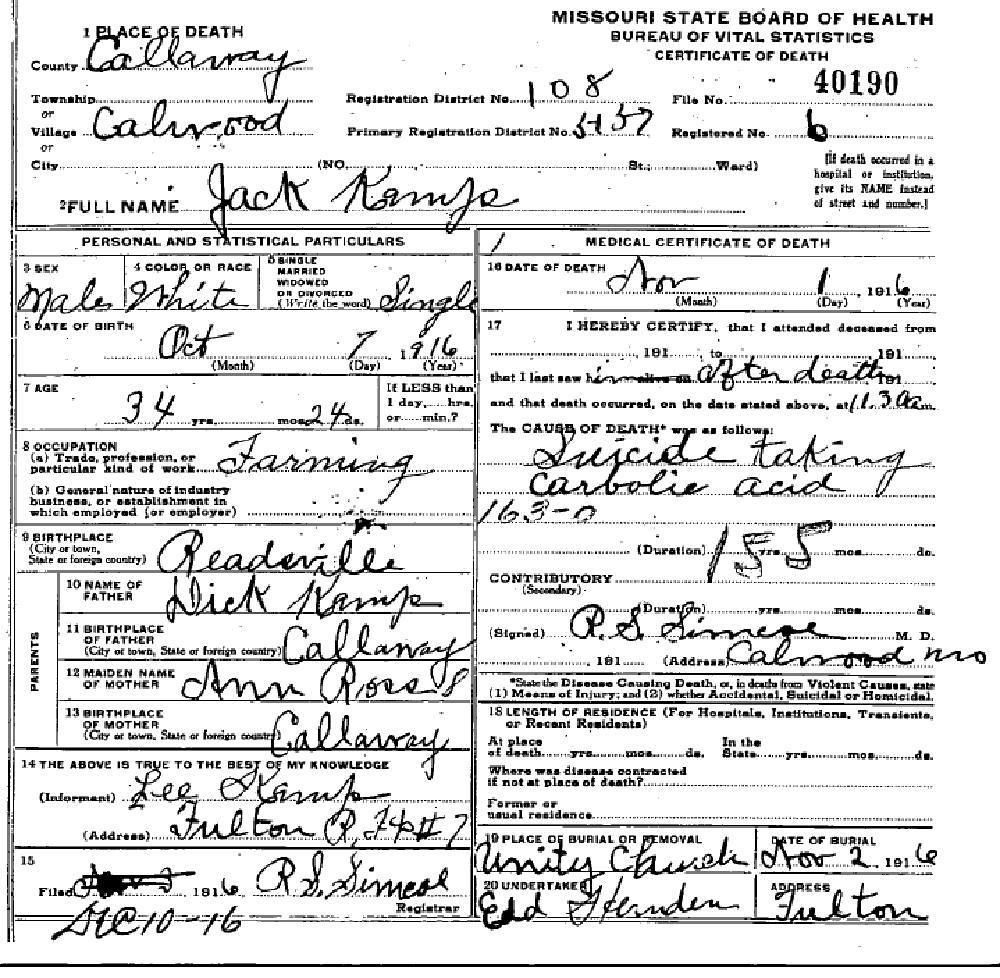 MISSOURI STATE BOARD OF HEALTH
BUREAU OF VITAL STATISTICS
CERTIFICATE OF DEATH
1 PLACE OF DEATH
County Callaway
Township
or
Village Calwood
or
City (NO. St.; Ward)
Registration District No. 108
Primary Registration District No. 5157
File No. 40190
Registered No. 6
[If death occurred in a
hospital or institution,
give its NAME instead
of street and number.]
2 FULL NAME Jack Kemp
PERSONAL AND STATISTICAL PARTICULARS
3 SEX
Male
4 COLOR OR RACE
White
5 SINGLE
MARRIED
WIDOWED
OR DIVORCED
(Write the word) Single
6 DATE OF BIRTH
Oct 7, 1916
(Month) (Day) (Year)
7 AGE
34 yrs. mos. 24 ds.
If LESS than
1 day, hrs.
or min.?
8 OCCUPATION
(a) Trade, profession, or
particular kind of work Farming
(b) General nature of industry
business, or establishment in
which employed (or employer)
9 BIRTHPLACE
(City or town,
State or foreign country) Readsville
PARENTS
10 NAME OF
FATHER Dick Kemp
11 BIRTHPLACE
OF FATHER
(City or town, State or foreign country) Callaway
12 MAIDEN NAME
OF MOTHER Ann Ross
13 BIRTHPLACE
OF MOTHER
(City or town, State or foreign country) Callaway
14 THE ABOVE IS TRUE TO THE BEST OF MY KNOWLEDGE
(Informant) Lee Kemp
(Address) Fulton R. #7
15
Filed Nov 3 1916 R.S. Simcoe
Registrar
DEC 10-16
MEDICAL CERTIFICATE OF DEATH
16 DATE OF DEATH Nov 1, 1916
(Month) (Day) (Year)
17 I HEREBY CERTIFY, that I attended deceased from
, 191 , to 191
that I last saw him alive on after death 191
and that death occurred, on the date stated above, at 11.30 a m.
The CAUSE OF DEATH* was as follows:
Suicide taking
carbolic acid
163-0
(Duration) yrs. mos. ds.
155
CONTRIBUTORY
(Secondary)
(Duration) yrs. mos. ds.
(Signed) R. S. Simcoe M. D.
, 191 (Address) Calwood Mo
*State the Disease Causing Death, or, in deaths from Violent Causes, state
(1) Means of Injury; and (2) whether Accidental, Suicidal or Homicidal.
18 LENGTH OF RESIDENCE (For Hospitals, Institutions, Transients,
or Recent Residents)
At place
of death yrs. mos. ds.
In the
State yrs. mos. ds.
Where was disease contracted
if not at place of death?
Former or
usual residence
19 PLACE OF BURIAL OR REMOVAL
Unity Church
DATE OF BURIAL
Nov 2, 1916
20 UNDERTAKER
Edd Hernden
ADDRESS
Fulton